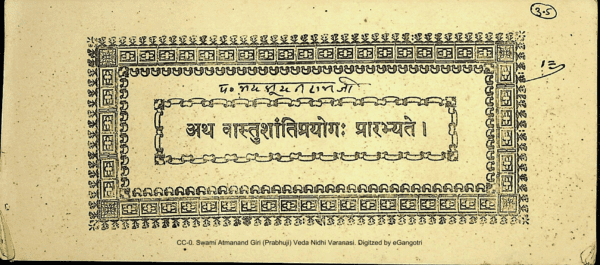 3.5
अथ वास्तुशांतिप्रयोगः प्रारभ्यते।
CC-0. Swami Atmanand Giri (Prabhuji) Veda Nidhi Varanasi. Digitzed by eGangotri